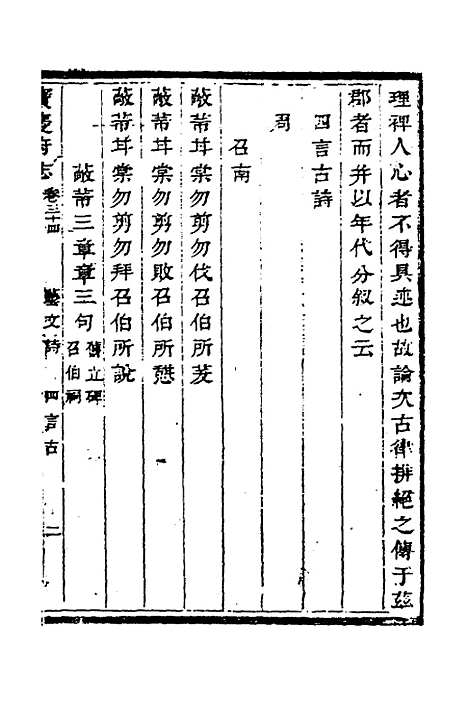 理裨人心者不得具述也故論次古律排絕之傳于茲
郡者而并以年代分叙之云
四言古詩
周
召南
蔽芾甘棠勿剪勿伐召伯所茇
蔽芾甘棠勿剪勿敗召伯所憇
蔽芾甘棠勿剪勿拜召伯所說
蔽芾三章章三句 舊立碑
召伯祠
寶慶府志 卷三十四 藝文詩 四言古 二